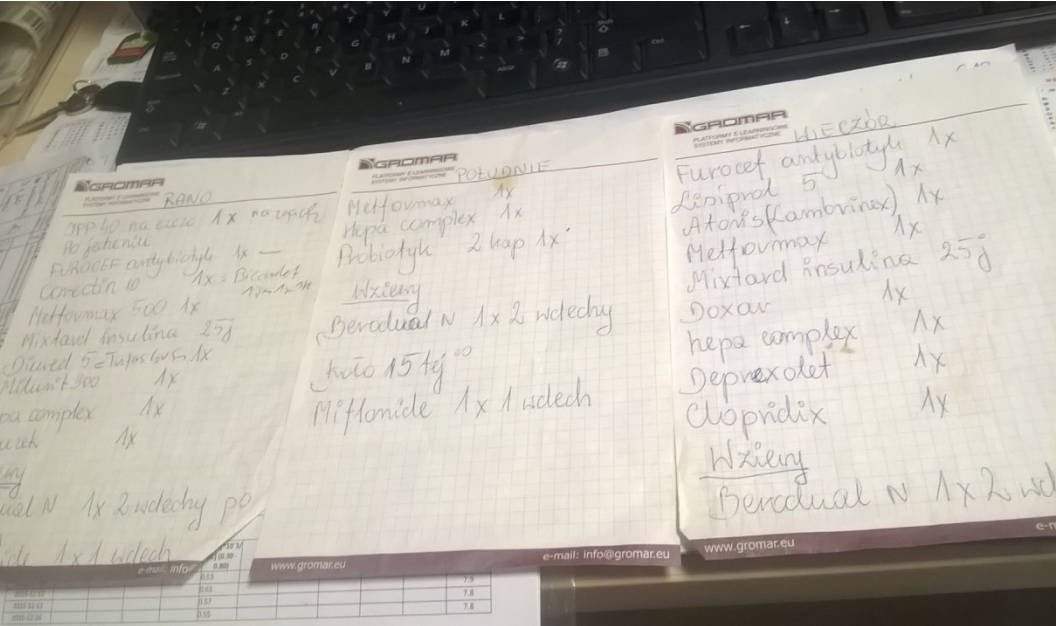 GROMAR
PLATFORMY E-LEARNINGOWE
SYSTEMY INFORMATYCZNE
RANO
IPP 40 na czczo 1x
Po jedzeniu
FUROCEF antybiotyk 1x —
Corectin 10 1x = Bicardef
Metformax 500 1x
Mixtard Insulina 25j
Diured 5 = 1x
Milurit 300 1x
pa complex 1x
1x
ual N 1x 2 wdechy po
ide 1x 1 wdech
e-mail: info
GROMAR
PLATFORMY E-LEARNINGOWE
SYSTEMY INFORMATYCZNE
POŁUDNIE
Metformax 1x
Hepa complex 1x
Probiotyk 2 kap 1x
Wziewy
Berodual N 1x 2 wdechy
około 15 tej 00
Miflonide 1x 1 wdech
www.gromar.eu
e-mail: info@gromar.eu
GROMAR
PLATFORMY E-LEARNINGOWE
SYSTEMY INFORMATYCZNE
WIECZÓR
Furocef antybiotyk 1x
Lisiprol 5 1x
Atoris (Lambrinex) 1x
Metformax 1x
Mixtard insulina 25j
Doxar 1x
hepa complex 1x
Deprexolet 1x
Clopidix 1x
Wziewy
Berodual N 1x 2 wd
www.gromar.eu